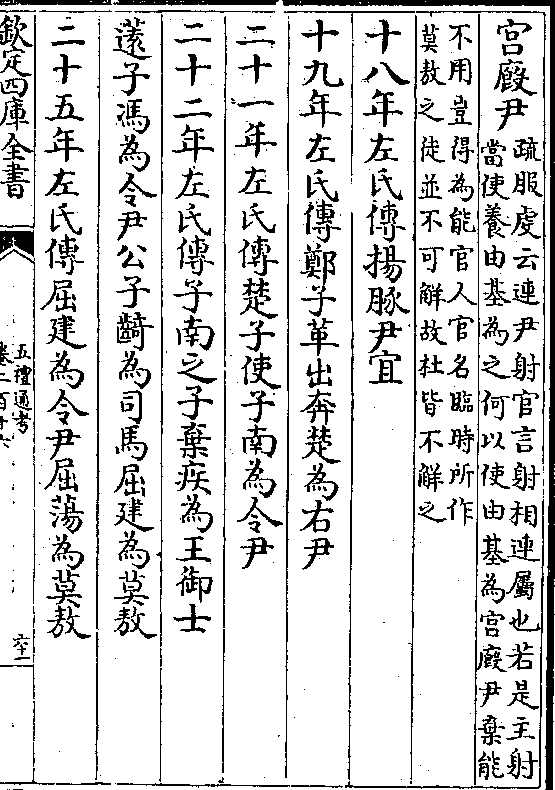 宫廏尹
疏服虔云連尹射官言射相連屬也若是主射
當使養由基為之何以使由基為宫廏尹棄能
不用豈得為能官人官名臨時所作
莫敖之徒並不可解故杜皆不解之
十八年左氏傳揚豚尹宜
十九年左氏傳鄭子革出奔楚為右尹
二十一年左氏傳楚子使子南為令尹
二十二年左氏傳子南之子棄疾為王御士
薳子馮為令尹公子齮為司馬屈建為莫敖
二十五年左氏傳屈建為令尹屈蕩為莫敖
欽定四庫全書
五禮通考
卷二百十六
六十一